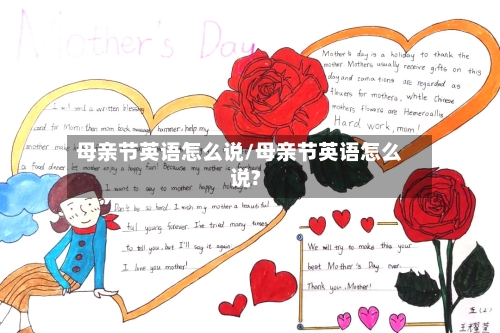 Mother's Day
Mother's day is a holiday to thank the
mother. Mothers usually receive gifts on this
day and carnations are regarded as
flowers for mothers, while chinese
mothers flowers are Hemerocallis
Hard work, mom!
I will send a written blessing
card for Mom: then mom back hammer, help my
mother
母亲节英语怎么说/母亲节英语怎么
说?
a food dinner let mother enjoy a happy Fan! Because my mother
I want to say to mother happy holiday
Don't be so hard. I wish my mother a beautiful.
ful young forever. I've tried many times
to tell you, but I'll say it again,
I love you mother!
We will try to make this your
best Mother's Day ever.
Thank you, Mother!
五(2)
王耀萱